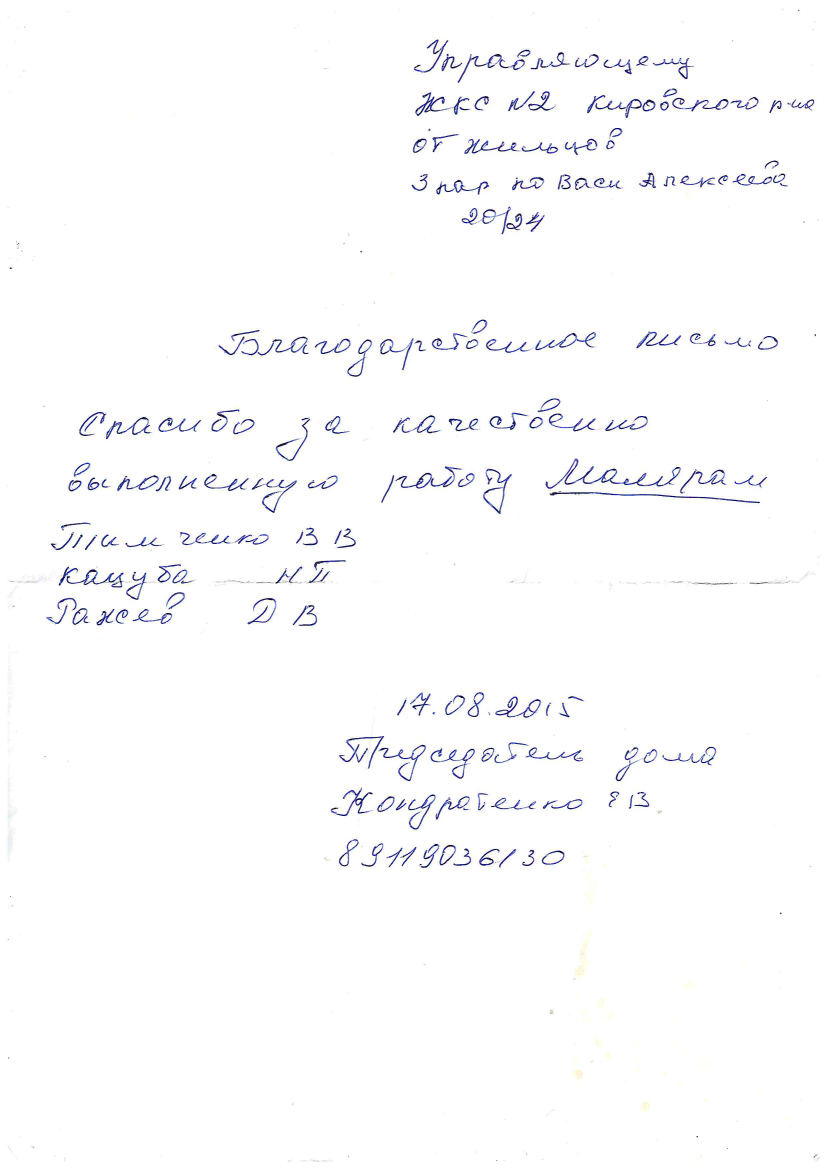 Управляющему
ЖКС №2 Кировского р-на
от жильцов
3 пар по Васи Алексеева
20/24
Благодарственное письмо
Спасибо за качественно
выполненную работу Малярам
Тимченко В В
Кацуба Н П
Ражев Д В
17.08.2015
Председатель дома
Кондратенко В
89119036130